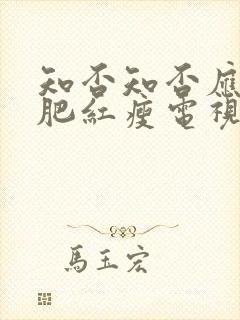 知否知否應
肥紅瘦電視
馬玉宏